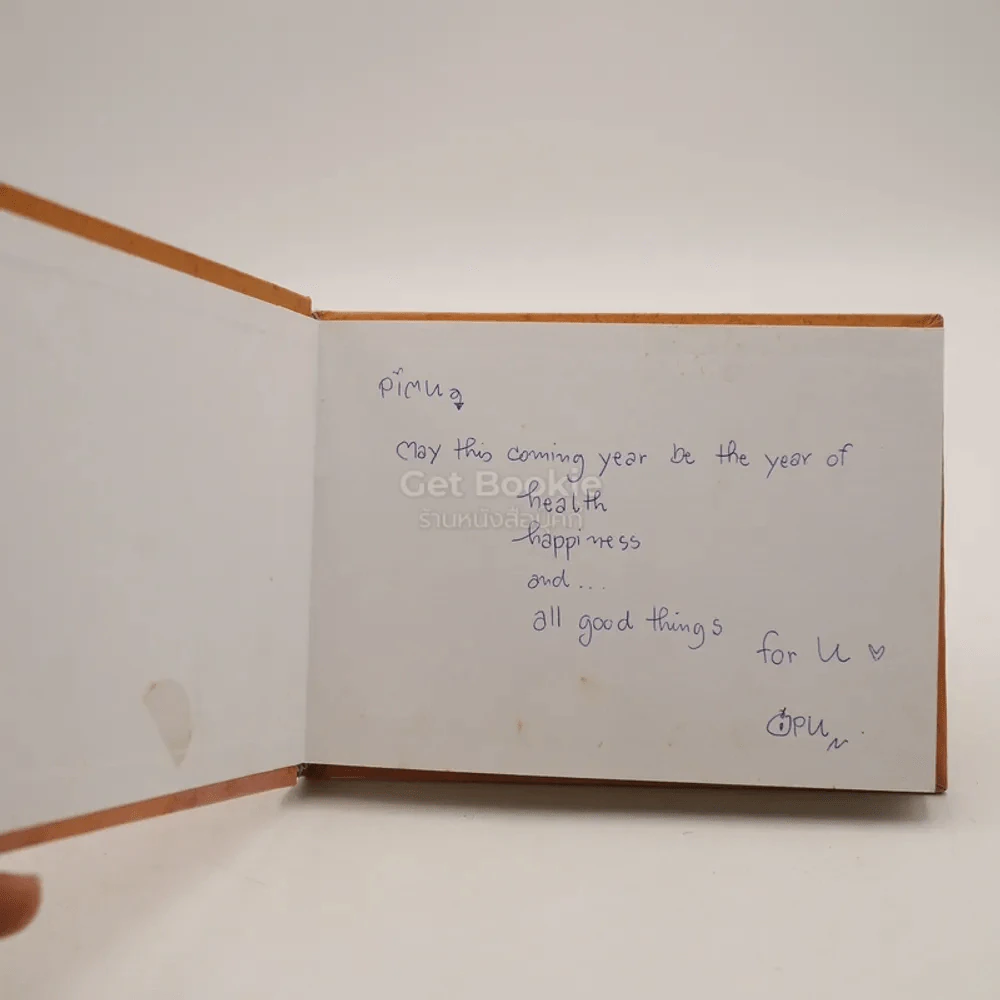 May this coming year be the year of
Get Bookie
health
ร้านหนังสือบุ๊คกี้
happiness
and...
all good things
for U ♡